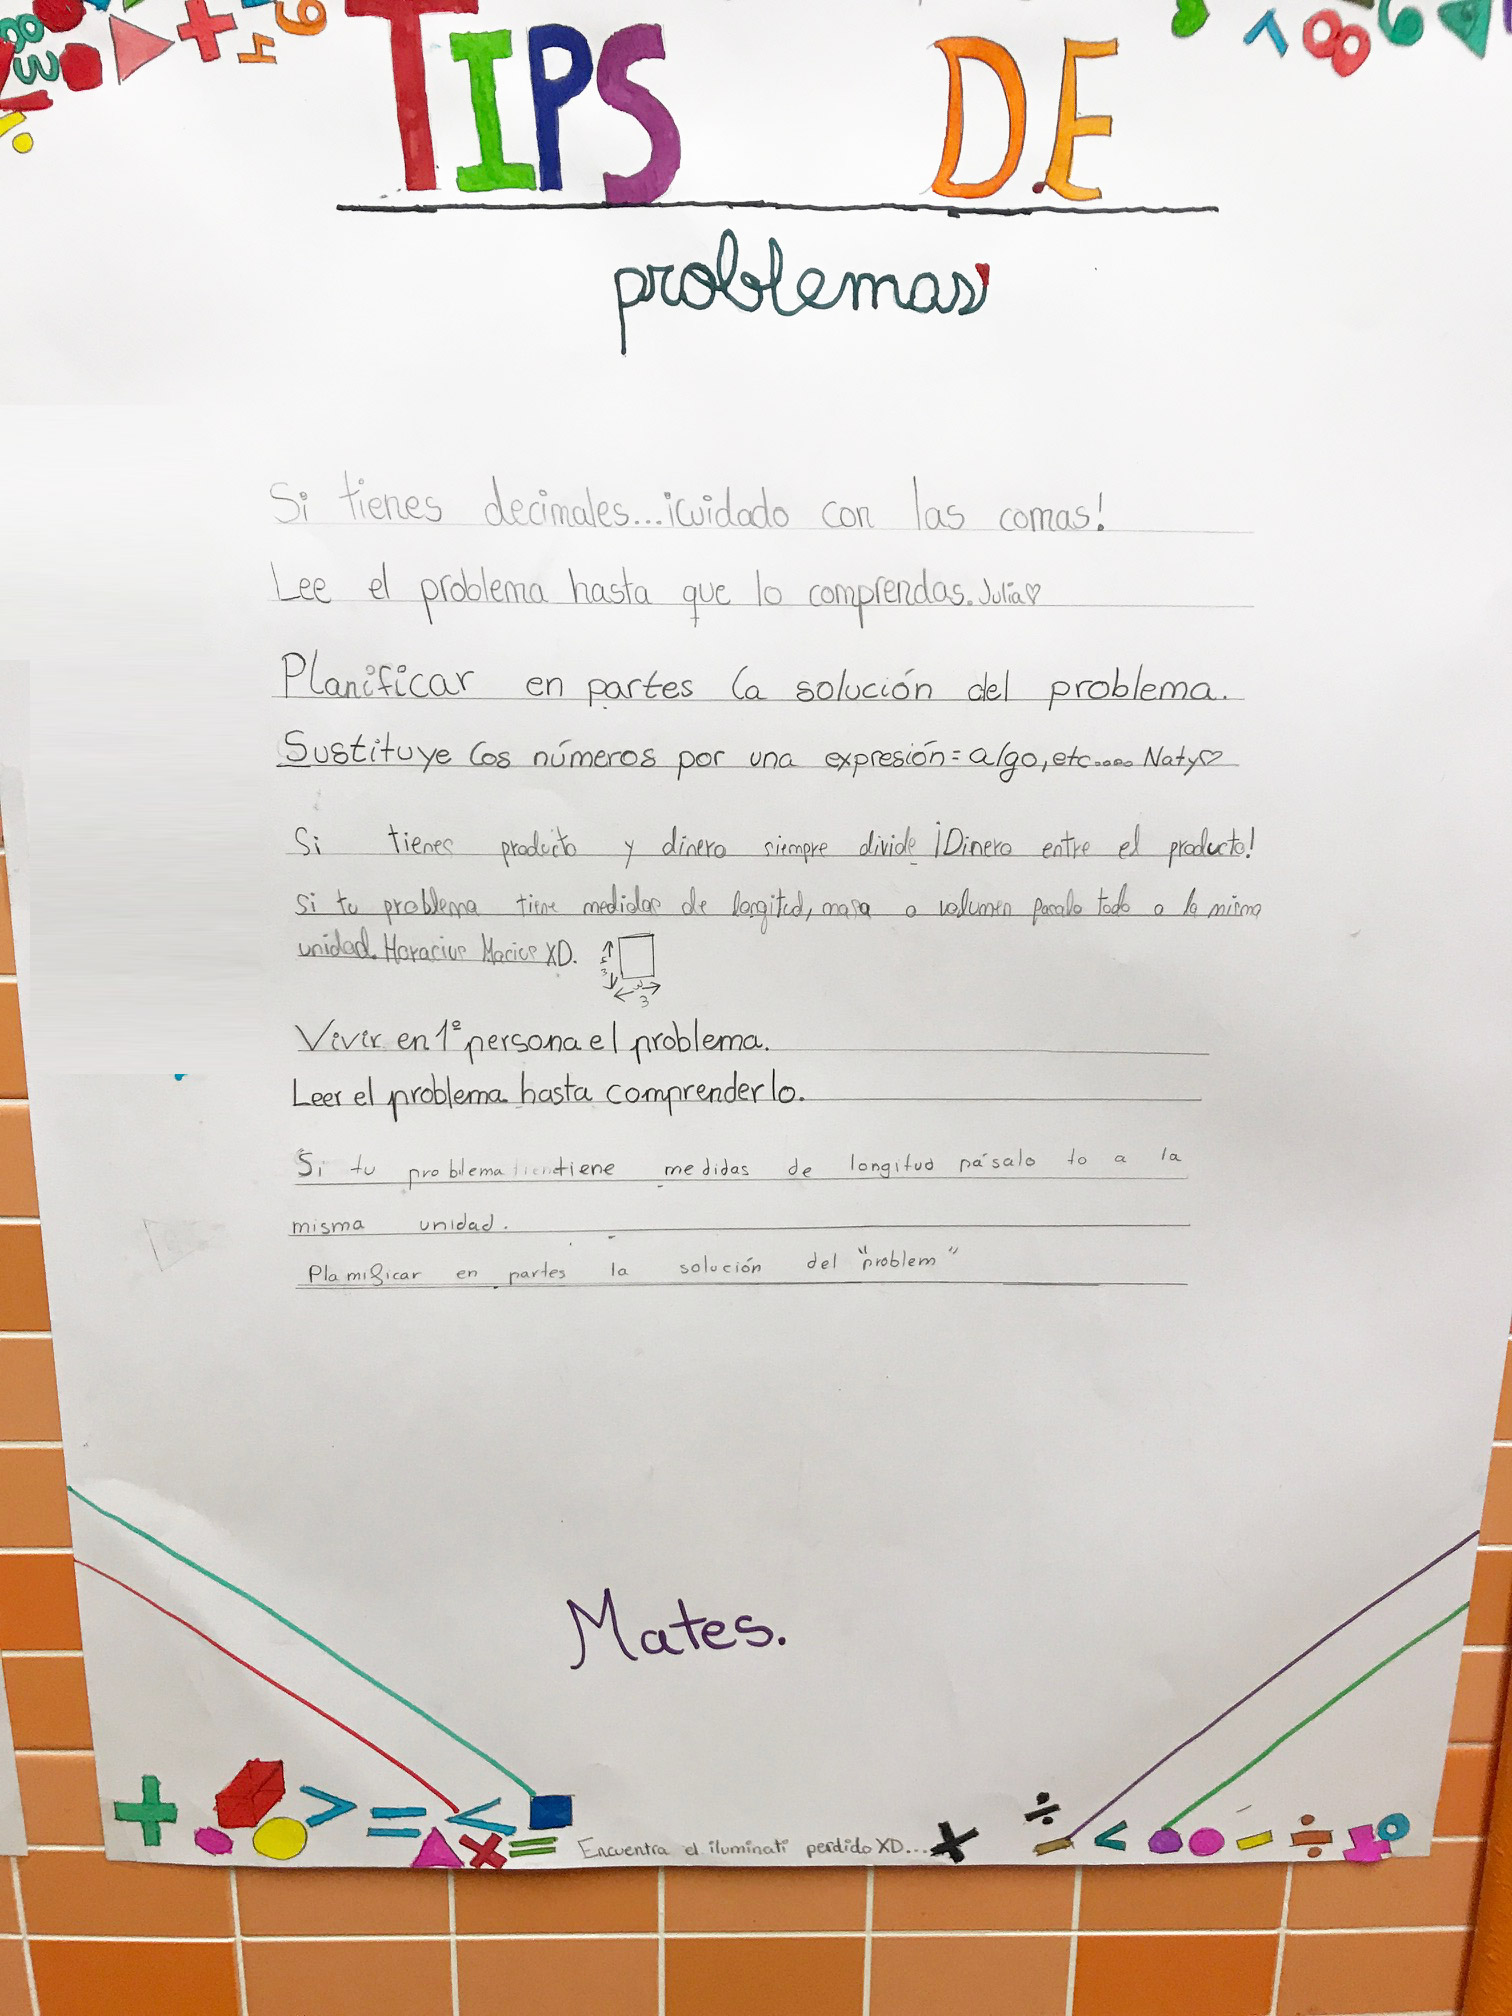 TIPS DE
problemas
Si tienes decimales...¡cuidado con las comas!
Lee el problema hasta que lo comprendas. Julia♡
Planificar en partes la solución del problema.
Sustituye los números por una expresión = algo, etc..... Naty♡
Si tienes producto y dinero siempre divide ¡Dinero entre el producto!
Si tu problema tiene medidas de longitud, masa o volumen pasalo todo a la misma
unidad. Horacius Macius XD.
3
Vivir en 1º persona el problema.
Leer el problema hasta comprenderlo.
Si tu problema tiene medidas de longitud pásalo to a la
misma unidad.
Planificar en partes la solución del "problem"
Mates.
Encuentra el iluminati perdido XD...